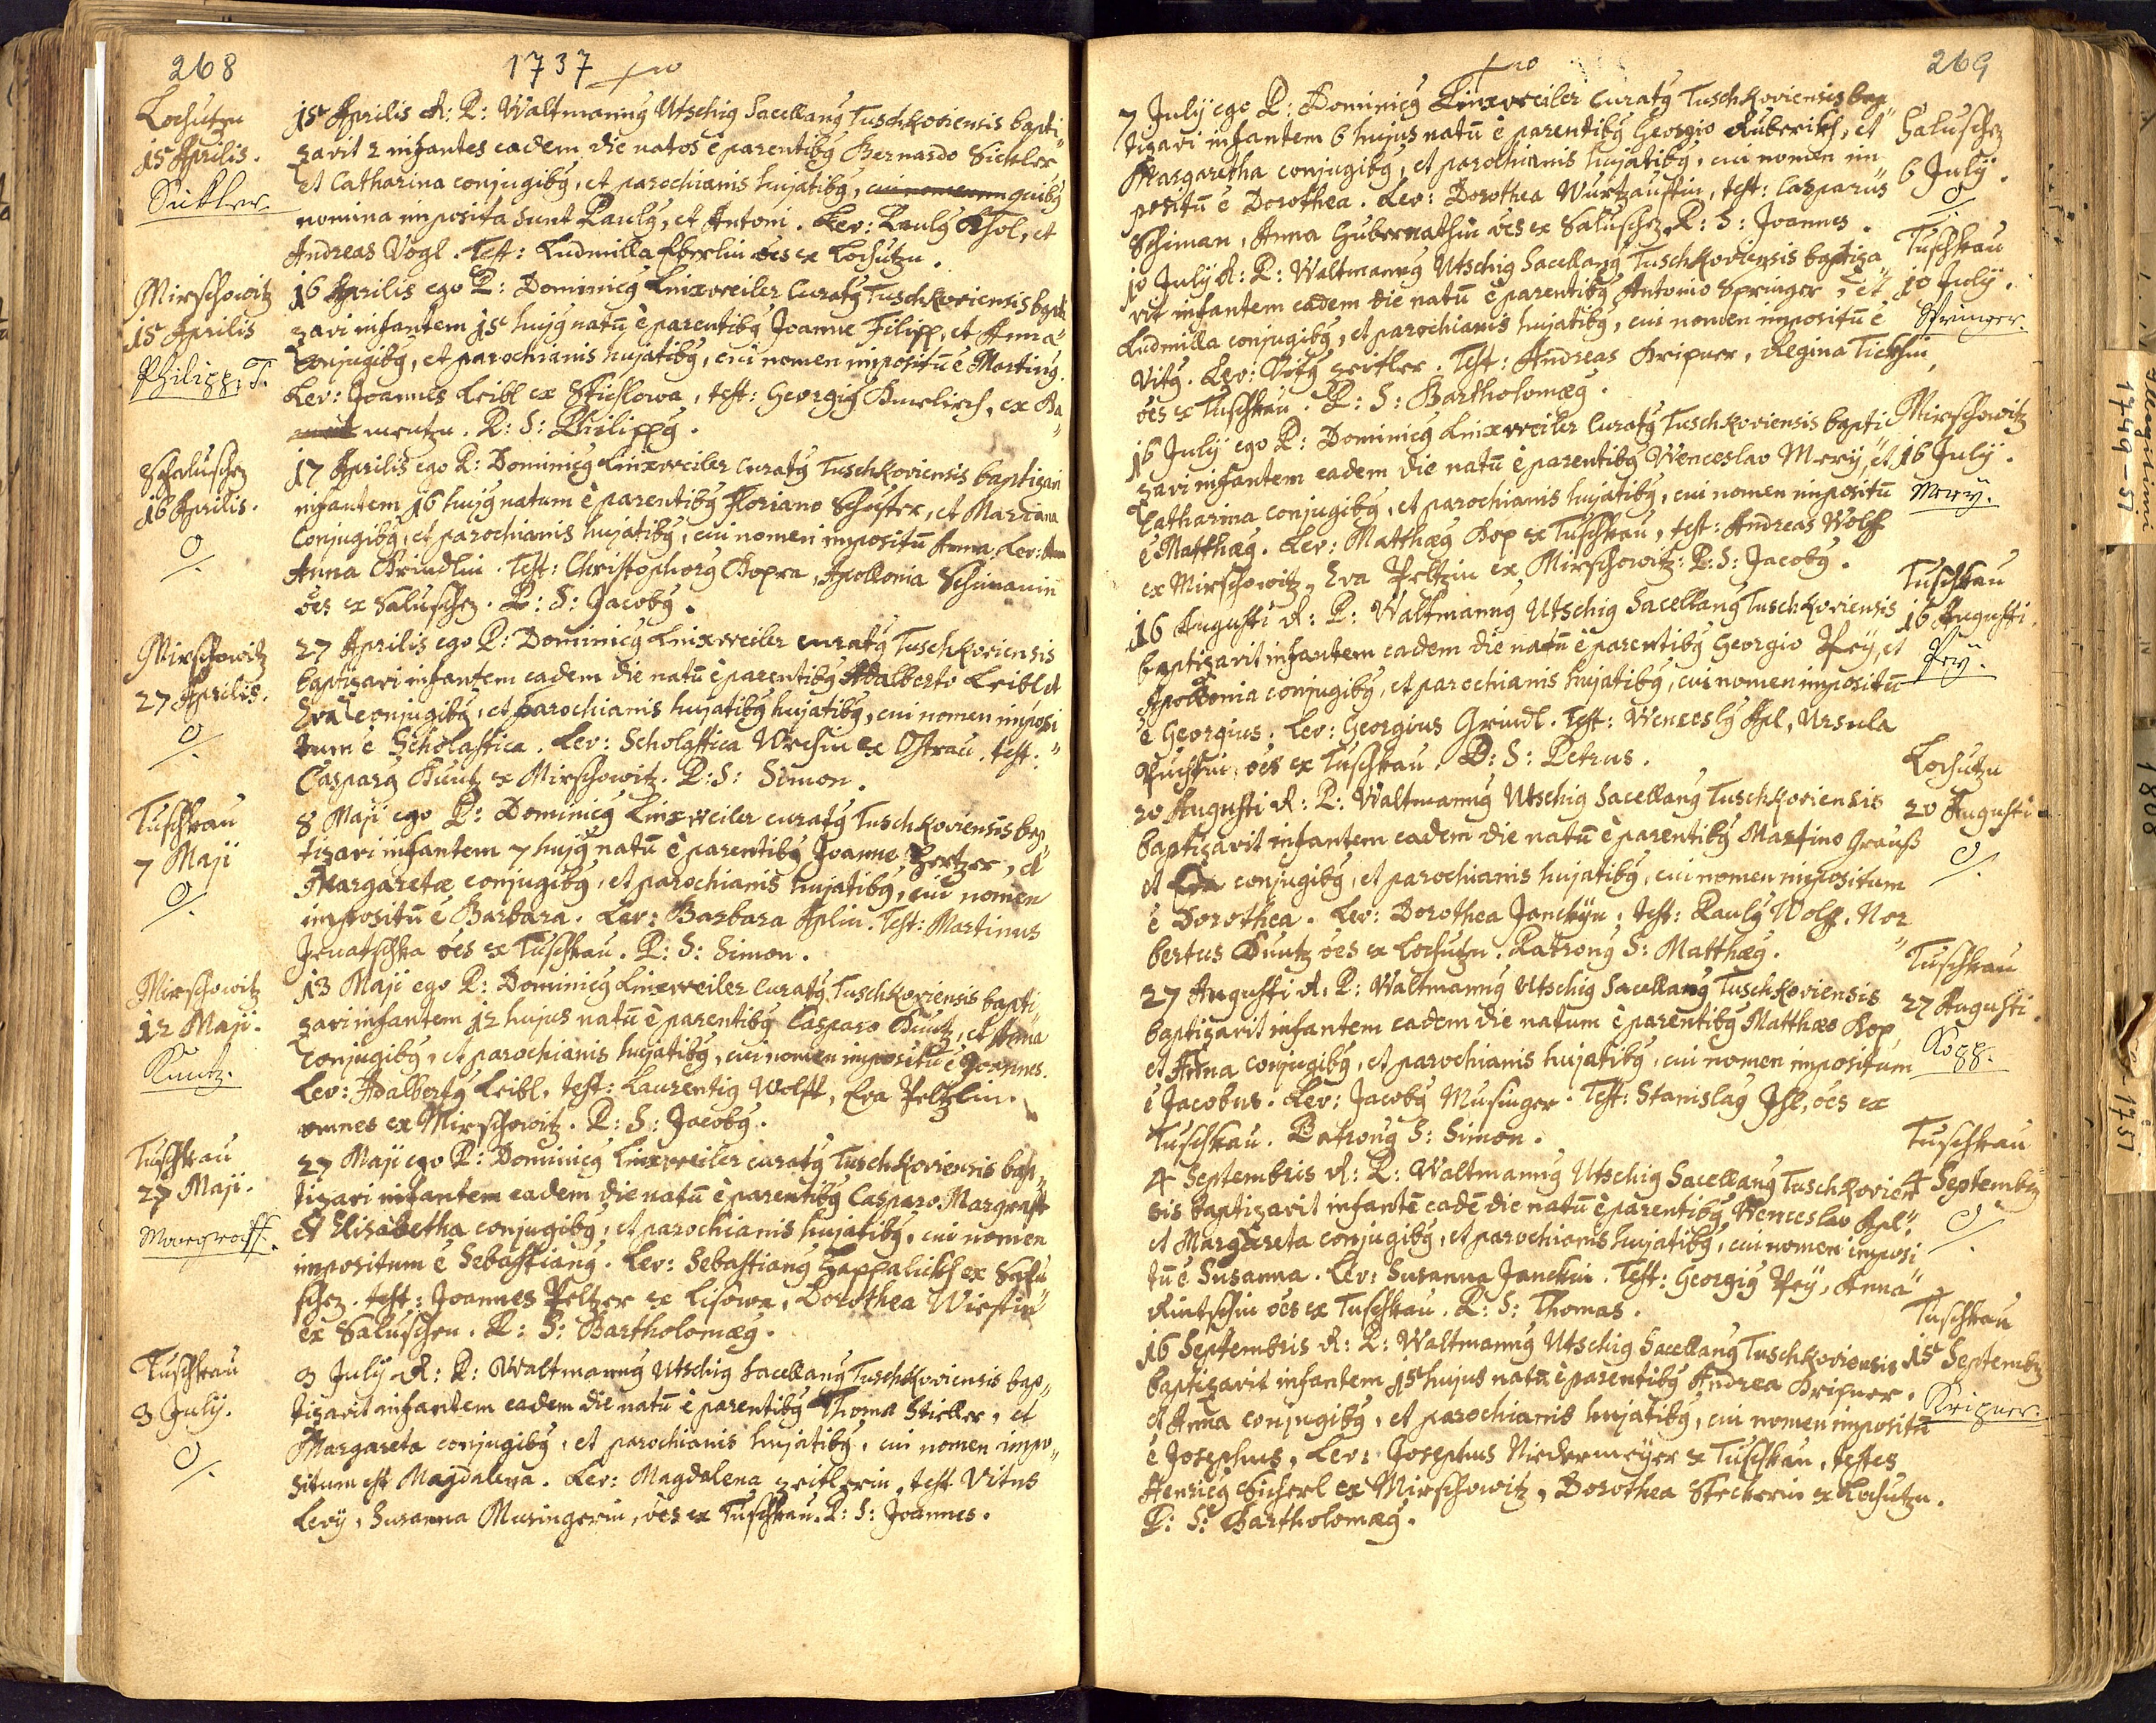 268
1737
Lochutzn
15 Aprilis.
Sickler.
15 Aprilis A: R: Waltmannꝰ Utschig Sacellanꝰ Tuschkoviensis bapti
zavit 2 infantes eadem die natos è parentibꝰ Bernardo Sickler
et Catharina conjugibꝰ, et parochianis hujatibꝰ, cui nomen quibꝰ
nomina imposita sunt Paulꝰ, et Antoni. Lev: Paulꝰ et
Andreas Vogl. Test: Ludmilla Eberlin oēs ex Lochutzn.
Mirschowitz
15 Aprilis
Philipp, J.
16 Aprilis ego P: Dominicꝰ Linxweiler Curatꝰ Tuschkoviensis bapti
zavi infantem 15 hujꝰ natū è parentibꝰ Joanne Filipp, et Anna
Conjugibꝰ, et parochianis hujatibꝰ, cui nomen impositū ē Martinꝰ.
Lev: Joannes Leibl ex, test: Georgiꝰ ex
mentzn. P: S: Philippꝰ.
Saluschez
16 Aprilis.
17 Aprilis ego P: Dominicꝰ Linxweiler Curatꝰ Tuschkoviensis baptizavi
infantem 16 hujꝰ natum è parentibꝰ Floriano Schuster, et Mariana
Conjugibꝰ, et parochianis hujatibꝰ, cui nomen impositū Anna. Lev:
Anna Brindlin. Test: Christophorꝰ Kopra, Apollonia Schimanin
oēs ex Saluschez. P: S: Jacobꝰ.
Mirschowitz
27 Aprilis.
27 Aprilis ego P: Dominicꝰ Linxweiler curatꝰ Tuschkoviensis
baptizavi infantem eadem die natū è parentibꝰ Adalberto Leibl et
Eva conjugibꝰ, et parochianis hujatibꝰ hujatibꝰ, cui nomen imposi
tum ē Scholastica. Lev: Scholastica ex Ostrau. test:
Casparꝰ Kuntz ex Mirschowitz. P: S: Simon.
Tuschkau
7 Maji
8 Maji ego P: Dominicꝰ Linxweiler curatꝰ Tuschkoviensis bap
tizavi infantem 7 hujꝰ natū è parentibꝰ Joanne, et
Margareta conjugibꝰ, et parochianis hujatibꝰ, cui nomen
impositū ē Barbara. Lev: Barbara Aplin. Test: Martinus
oēs ex Tuschkau. P: S: Simon.
Mirschowitz
12 Maji.
Kuntz.
13 Maji ego P: Dominicꝰ Linxweiler Curatꝰ Tuschkoviensis bapti
zavi infantem 12 hujus natū è parentibꝰ Casparo Kuntz, et Anna
Conjugibꝰ, et parochianis hujatibꝰ, cui nomen impositū ē Joannes.
Lev: Adalbertꝰ Leibl, test: Laurentiꝰ Wolff, Eva Peltzlin.
omnes ex Mirschowitz. P: S: Jacobꝰ.
Tuschkau
27 Maji.
Margraff.
27 Maji ego P: Dominicꝰ Linxweiler curatꝰ Tuschkoviensis bap
tizavi infantem eadem die natū è parentibꝰ Casparo Margraff
et Elisabetha conjugibꝰ, et parochianis hujatibꝰ, cui nomen
impositum ē Sebastianꝰ. Lev: Sebastianꝰ ex Salu
schez. test: Joannes Peltzer ex Lisowa, Dorothea
ex Saluschen. P: S: Bartholomæꝰ.
Tuschkau
3 July.
3 July A: R: Waltmannꝰ Utschig Sacellanꝰ Tuschkoviensis bap
tizavit infantem eadem die natū è parentibꝰ Thoma Stieller, et
Margareta conjugibꝰ, et parochianis hujatibꝰ, cui nomen impo
situm est Magdalena. Lev: Magdalena Zeitlerin, test. Vitus
Levÿ, Susanna Musingerin, oēs ex Tuschkau. P: S: Joannes.
269
7 July ego P: Dominicꝰ Linxweiler Curatꝰ Tuschkoviensis bap
tizavi infantem 6 hujus natū è parentibꝰ Georgio, et
Margaretha conjugibꝰ, et parochianis hujatibꝰ, cui nomen im
positū ē Dorothea. Lev: Dorothea, test: Casparus
Schiman, Anna Gubernathin oēs ex Saluschez P: S: Joannes.
Saluschez
6 July.
10 July A: R: Waltmannꝰ Utschig Sacellanꝰ Tuschkoviensis baptiza
vit infantem eadem die natū è parentibꝰ Antonio Springer, et
Ludmilla conjugibꝰ, et parochianis hujatibꝰ, cui nomen impositū ē
Vitꝰ. Lev: Vitꝰ Zeitler. Test: Andreas Kripner, Regina
oēs ex Tuschkau. P: S: Bartholomæꝰ.
Tuschkau
10 July.
Springer.
16 July ego P: Dominicꝰ Linxweiler Curatꝰ Tuschkoviensis bapti
zavi infantem eadem die natū è parentibꝰ Wenceslao Mrvÿ, et
Catharina conjugibꝰ, et parochianis hujatibꝰ, cui nomen impositū
ē Matthæꝰ. Lev: Matthæꝰ Kop ex Tuschkau, test: Andreas Wolff
ex Mirschowitz, Eva Peltzin ex Mirschowitz: P: S: Jacobꝰ.
Mirschowitz
16 July.
16 Augusti A: R: Waltmannꝰ Utschig Sacellanꝰ Tuschkoviensis
baptizavit infantem eadem die natū è parentibꝰ Georgio Peÿ, et
Apollonia conjugibꝰ, et parochianis hujatibꝰ, cui nomen impositū
ē Georgius. Lev: Georgius Grindl. Test: Wenceslꝰ Apl, Ursula
oēs ex Tuschkau. P: S: Petrus.
Tuschkau
16 Augusti.
Peÿ.
20 Augusti A: R: Waltmannꝰ Utschig Sacellanꝰ Tuschkoviensis
baptizavit infantem eadem die natū è parentibꝰ Martino Grauß
et Eva conjugibꝰ, et parochianis hujatibꝰ, cui nomen impositum
ē Dorothea. Lev: Dorothea Janckÿn, test: Paulꝰ Wolff. Nor
bertus Kuntz oēs ex Lochutzn. Patronꝰ S: Matthæꝰ.
Lochutzn
20 Augusti
27 Augusti A: R: Waltmannꝰ Utschig Sacellanꝰ Tuschkoviensis
baptizavit infantem eadem die natum è parentibꝰ Matthæo Kop
et Anna conjugibꝰ, et parochianis hujatibꝰ, cui nomen impositum
ē Jacobus. Lev: Jacobꝰ Musinger. Test: Stanislaꝰ oēs ex
Tuschkau. Patronꝰ S: Simon.
Tuschkau
27 Augusti.
Kopp.
4 Septembris A: R: Waltmannꝰ Utschig Sacellanꝰ Tuschkovien
sis baptizavit infantē eadē die natū è parentibꝰ Wenceslao Apl
et Margareta conjugibꝰ, et parochianis hujatibꝰ, cui nomen imposi
tū ē Susanna. Lev: Susanna Janckin. Test: Georgiꝰ Peÿ, Anna
oēs ex Tuschkau. P: S: Thomas.
Tuschkau
4 Septembꝫ
16 Septembris A: R: Waltmannꝰ Utschig Sacellanꝰ Tuschkoviensis
baptizavit infantem 15 hujus natū è parentibꝰ Andrea Kripner,
et Anna conjugibꝰ, et parochianis hujatibꝰ, cui nomen impositū
ē Josephus. Lev: Josephus Niedermeÿer ex Tuschkau, testes
Henricꝰ Sicherl ex Mirschowitz, Dorothea Steckerin ex Lochutzn.
P: S: Bartholomæꝰ.
Tuschkau
15 Septembꝫ
Kripner.
1749-51
1808
1751